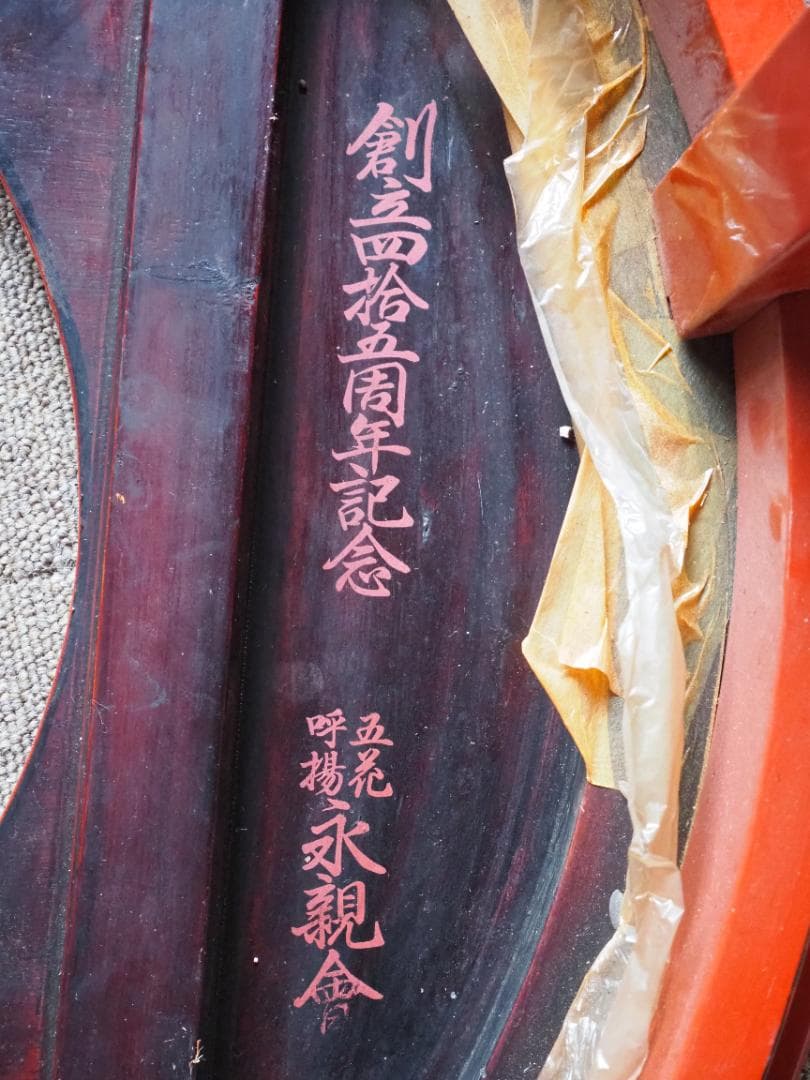 創立四拾五周年記念
五花
呼揚
永親會